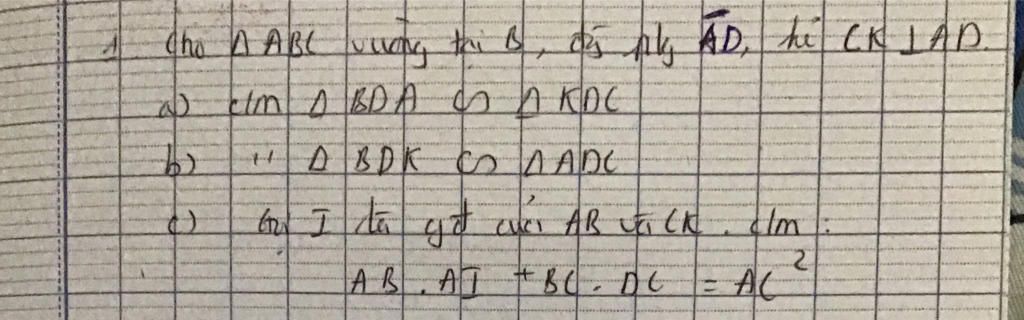 1 cho Δ ABC vuông tại B, đg pg AD, kẻ CK ⊥ AD.
a) c/m Δ BDA ∽ Δ KDC
b) '' Δ BDK ∽ Δ ADC
c) Gọi I là gđ của AB và CK. c/m:
AB. AI + BC. DC = AC²